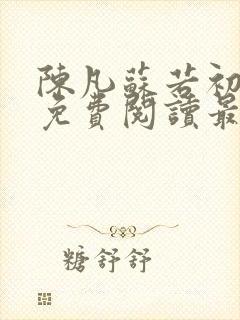 陳凡蘇若初
免費閱讀最
糖舒舒